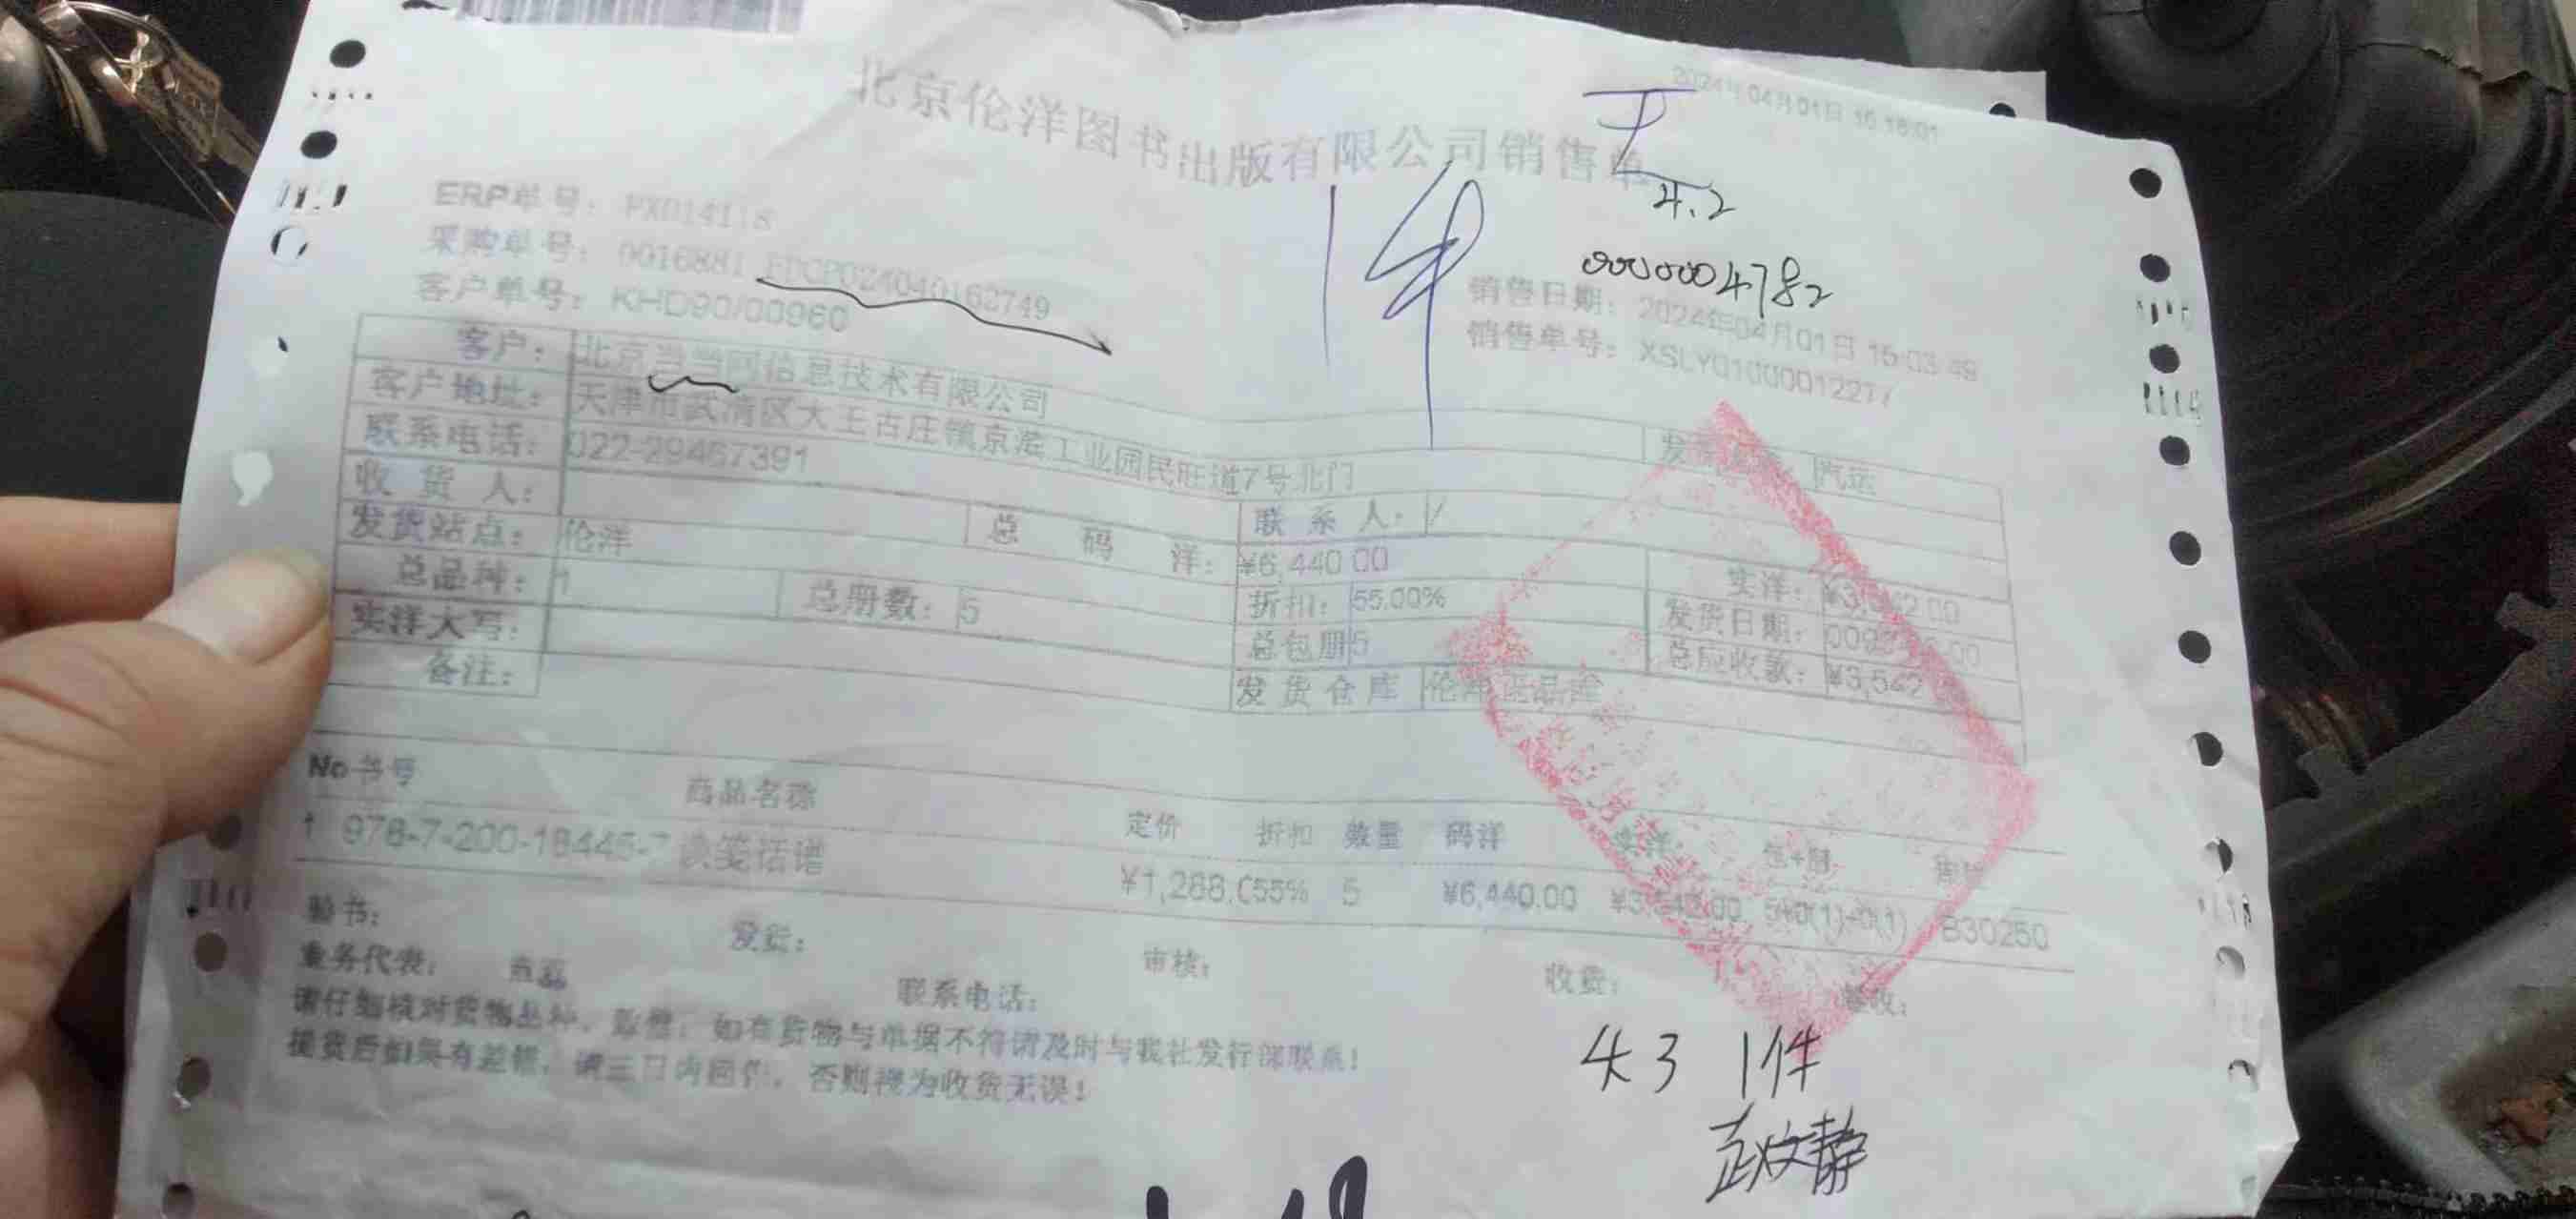 2024年04月01日 16:16:01
北京伦洋图书出版有限公司销售单
王
4.2
1件
0000004782
ERP单号: PX014118
采购单号: 0016881 EDCP024040162749
客户单号: KHD90700960
销售日期: 2024年04月01日 15:03:49
销售单号: XSLY01000012277
客户: 北京当当网信息技术有限公司 汽运
客户地址: 天津市武清区大王古庄镇京滨工业园民旺道7号北门
联系电话: 022-29467391 联系人: /
收货人:
发货站点: 伦洋 总码洋: ¥6,440.00 实洋: ¥3,542.00
总品种: 1 总册数: 5 折扣: 55.00% 发货日期:
实洋大写: 总包册 5 总应收款: ¥3,542
备注: 发货仓库
No 书号 商品名称 定价 折扣 数量 码洋 实洋 包+册
1 978-7-200-18445-7 笺谱 ¥1,288.0 55% 5 ¥6,440.00 ¥3,542.00 5+0(1)+0(1) 830250
验书: 发货: 审核: 收货: 签收:
业务代表: 联系电话:
请仔细核对货物品种、数量,如有货物与单据不符请及时与我社发行部联系!
提货后如果有差错,请三日内回传,否则视为收货无误!
4.3 1件
赵文静